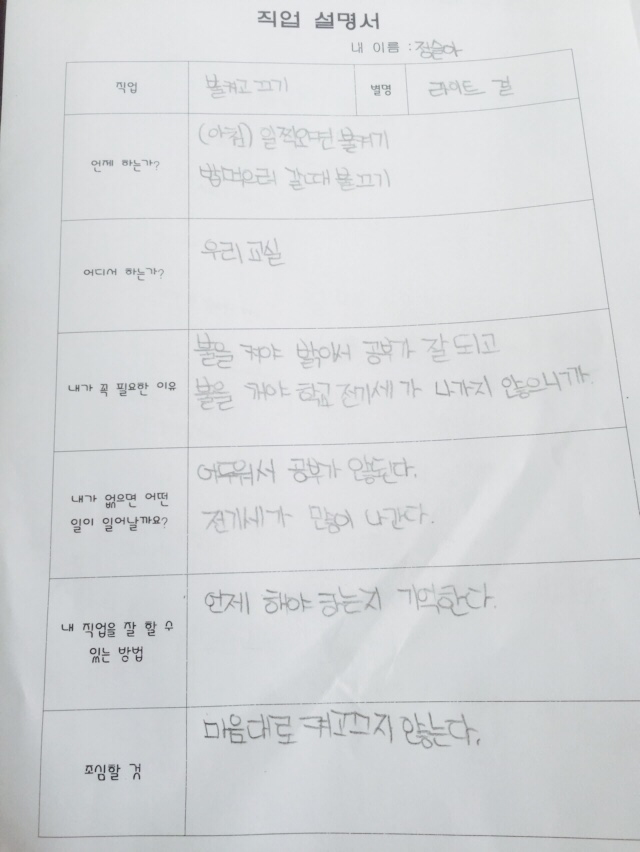 직업 설명서
내 이름 : 정슬아
직업 불켜고 끄기 별명 라이트 걸
언제 하는가?
(아침) 일찍오면 불켜기
밥먹으러 갈때 불끄기
어디서 하는가?
우리 교실
내가 꼭 필요한 이유
불을 켜야 밝아서 공부가 잘 되고
불을 꺼야 학교 전기세가 나가지 않으니까.
내가 없으면 어떤
일이 일어날까요?
어두워서 공부가 않된다.
전기세가 많이 나간다.
내 직업을 잘 할 수
있는 방법
언제 해야 하는지 기억한다.
조심할 것
마음대로 켜고끄지 않는다.